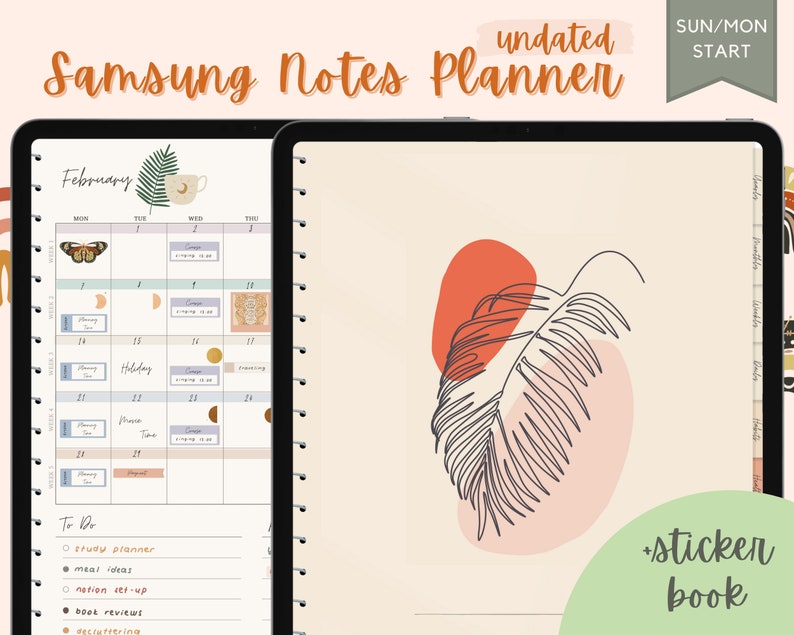 undated
Samsung Notes Planner
SUN/MON
START
February
MON TUE WED THU
WEEK 1
1 2 3
Course
singing 18:00
WEEK 2
7 8 9 10
Planning
Time
Course
singing 18:00
WEEK 3
14 15 16 17
Planning
Time
Holiday
Course
singing 18:00
traveling
WEEK 4
21 22 23 24
Planning
Time
Movie
Time
Course
singing 18:00
WEEK 5
28 29
Planning
Time
Payment
To Do
study planner
meal ideas
notion set-up
book reviews
decluttering
Monthly
Weekly
+sticker
book